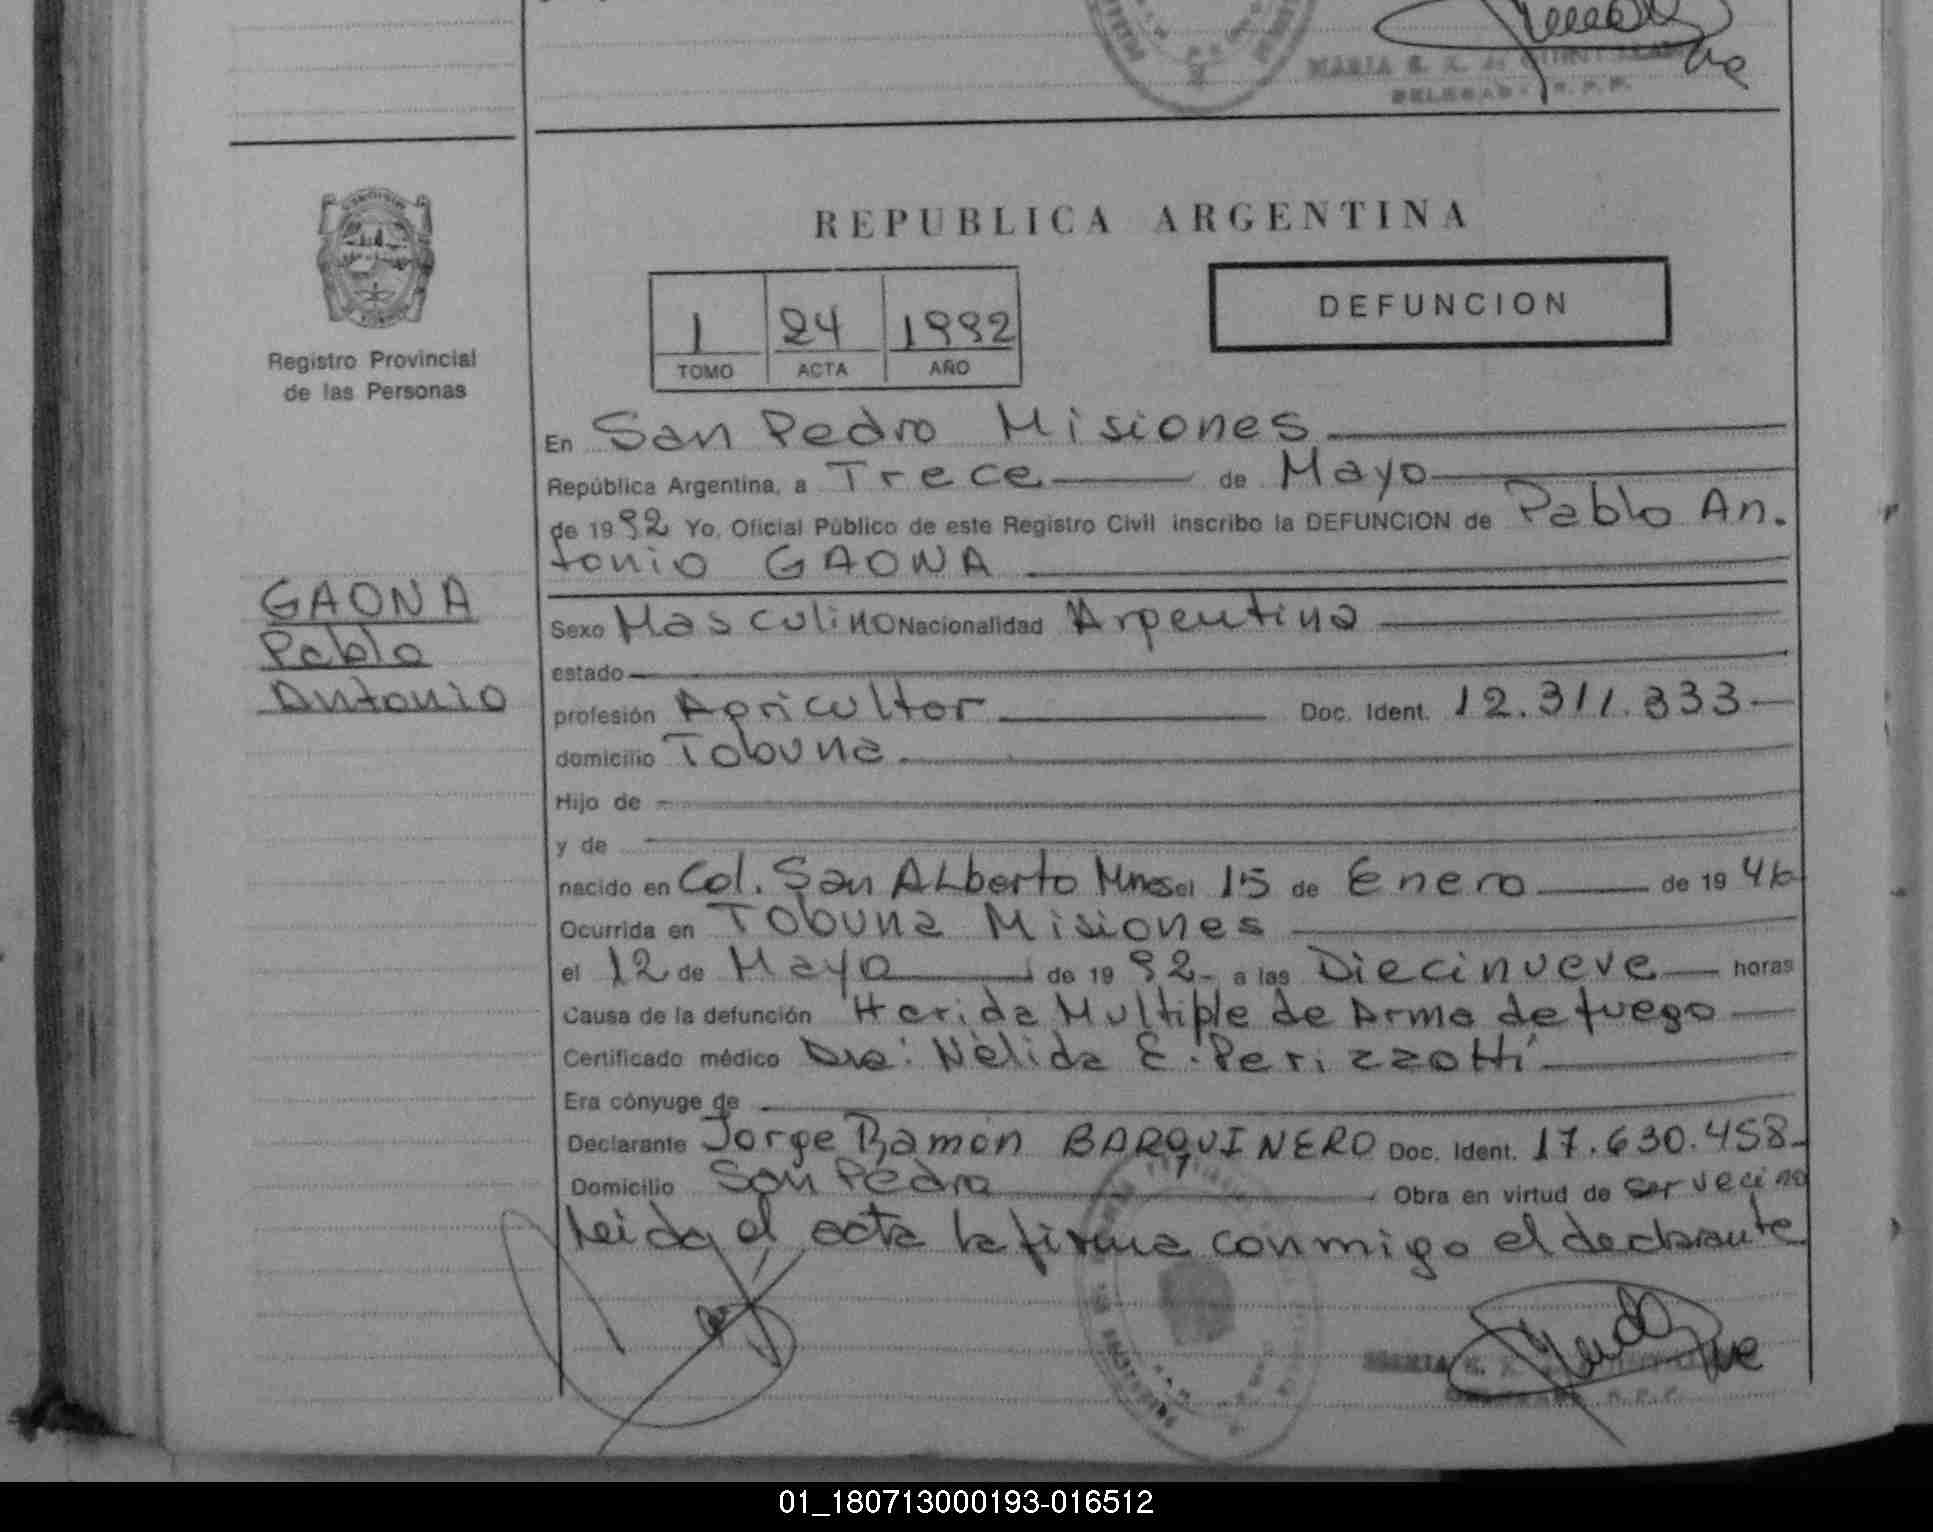 REPUBLICA ARGENTINA
DEFUNCION
1 24 1992
TOMO ACTA AÑO
Registro Provincial
de las Personas
En San Pedro Misiones
República Argentina, a Trece de Mayo
de 1992 Yo, Oficial Público de este Registro Civil inscribo la DEFUNCION de Pablo An.
tonio GAONA
GAONA
Pablo
Antonio
Sexo Masculino Nacionalidad Argentina
estado
profesión Agricultor Doc. Ident. 12.311.333
domicilio Tobuna
Hijo de
y de
nacido en Col. San ALberto Mnes el 15 de Enero de 1946
Ocurrida en Tobuna Misiones
el 12 de Mayo de 1992- a las Diecinueve horas
Causa de la defunción Herida Multiple de Arma de fuego
Certificado médico Dra: Nélida E. Perizzotti
Era cónyuge de
Declarante Jorge Ramón BARQUINERO Doc. Ident. 17.630.458-
Domicilio San Pedro Obra en virtud de ser vecino
leida el acta la firma conmigo el declarante
01_180713000193-016512